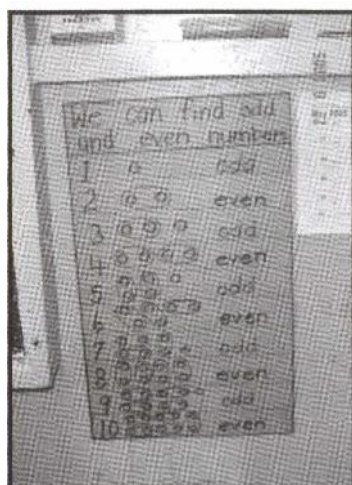 We can find odd
and even numbers
1 odd
2 even
3 odd
4 even
5 odd
6 even
7 odd
8 even
9 odd
10 even